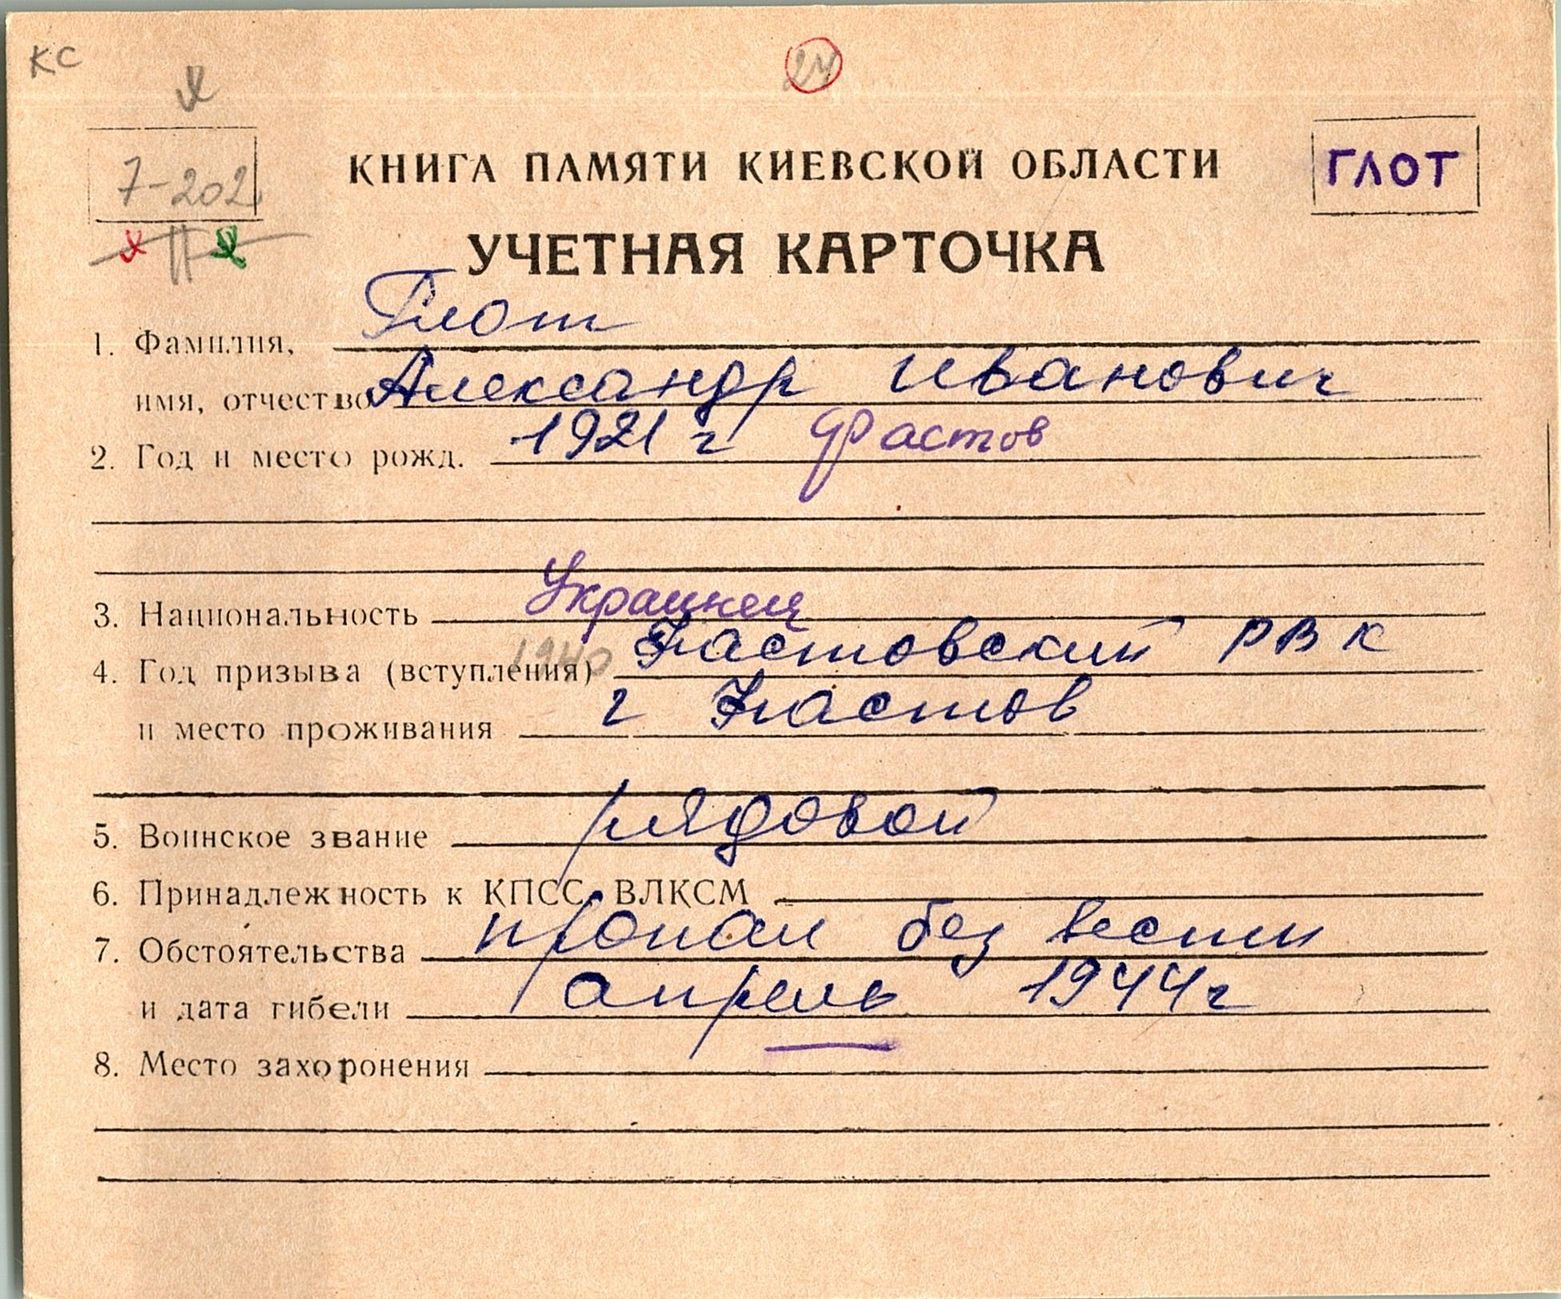 КС
24
7-202
КНИГА ПАМЯТИ КИЕВСКОЙ ОБЛАСТИ
ГЛОТ
УЧЕТНАЯ КАРТОЧКА
1. Фамилия, Глот
имя, отчество Александр Иванович
2. Год и место рожд. 1921 г Фастов
3. Национальность Украинец
4. Год призыва (вступления) 1940 Фастовский РВК
и место проживания г Фастов
5. Воинское звание рядовой
6. Принадлежность к КПСС, ВЛКСМ
7. Обстоятельства пропал без вести
и дата гибели апрель 1944 г
8. Место захоронения